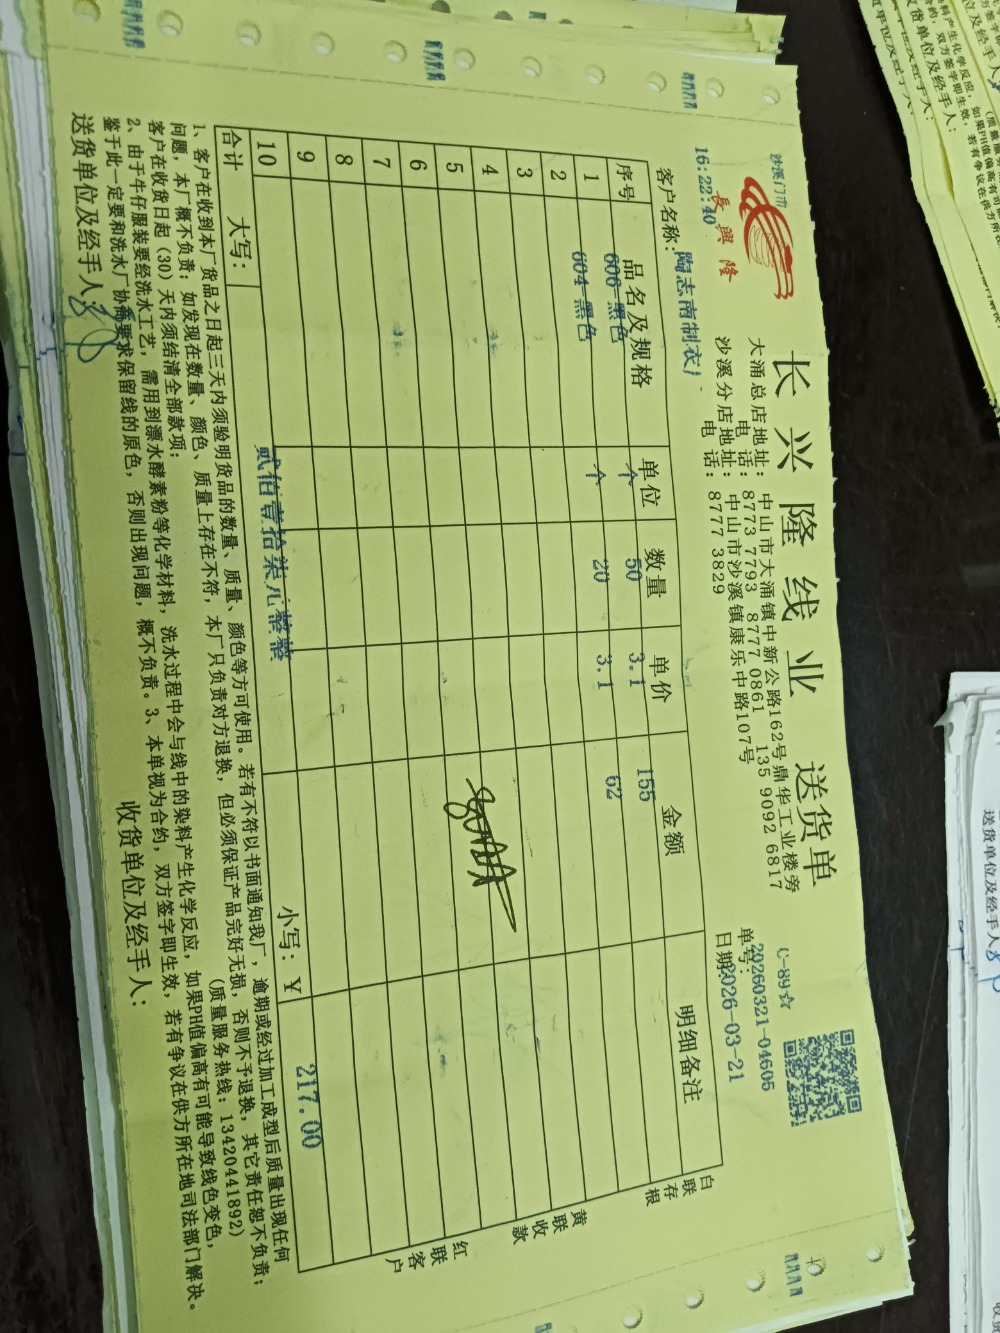 沙溪门市
長興隆
16:22:40
长兴隆线业 送货单
大涌总店地址：中山市大涌镇中新公路162号鼎华工业楼旁
电话：8773 7793 8777 0861 135 9092 6817
沙溪分店地址：中山市沙溪镇康乐中路107号
电话：8777 3829
C-89☆
单号：20260321-04605
日期：2026-03-21
客户名称：陶志南制衣厂
序号 品名及规格 单位 数量 单价 金额 明细备注
1 606 黑色 个 50 3.1 155
2 604 黑色 个 20 3.1 62
3
4
5
6
7
8
9
10
合计 大写：贰佰壹拾柒元整 小写：￥ 217.00
白联存根
黄联收款
红联客户
1、客户在收到本厂货品之日起三天内须验明货品的数量、质量、颜色等方可使用。若有不符以书面通知我厂，逾期或经过加工成型后质量出现任何
问题，本厂概不负责；如发现在数量、颜色、质量上存在不符，本厂只负责对方退换，但必须保证产品完好无损，否则不予退换，其它责任恕不负责；
客户在收货日起（30）天内须结清全部款项；（质量服务热线：13420441892）
2、由于牛仔服装要经洗水工艺，需用到漂水酵素粉等化学材料，洗水过程中会与线中的染料产生化学反应，如果PH值偏高有可能导致线色变色，
鉴于此一定要和洗水厂协商要求保留线的原色，否则出现问题，概不负责。3、本单视为合约，双方签字即生效，若有争议在供方所在地司法部门解决。
送货单位及经手人： 收货单位及经手人：
送货单位及经手人